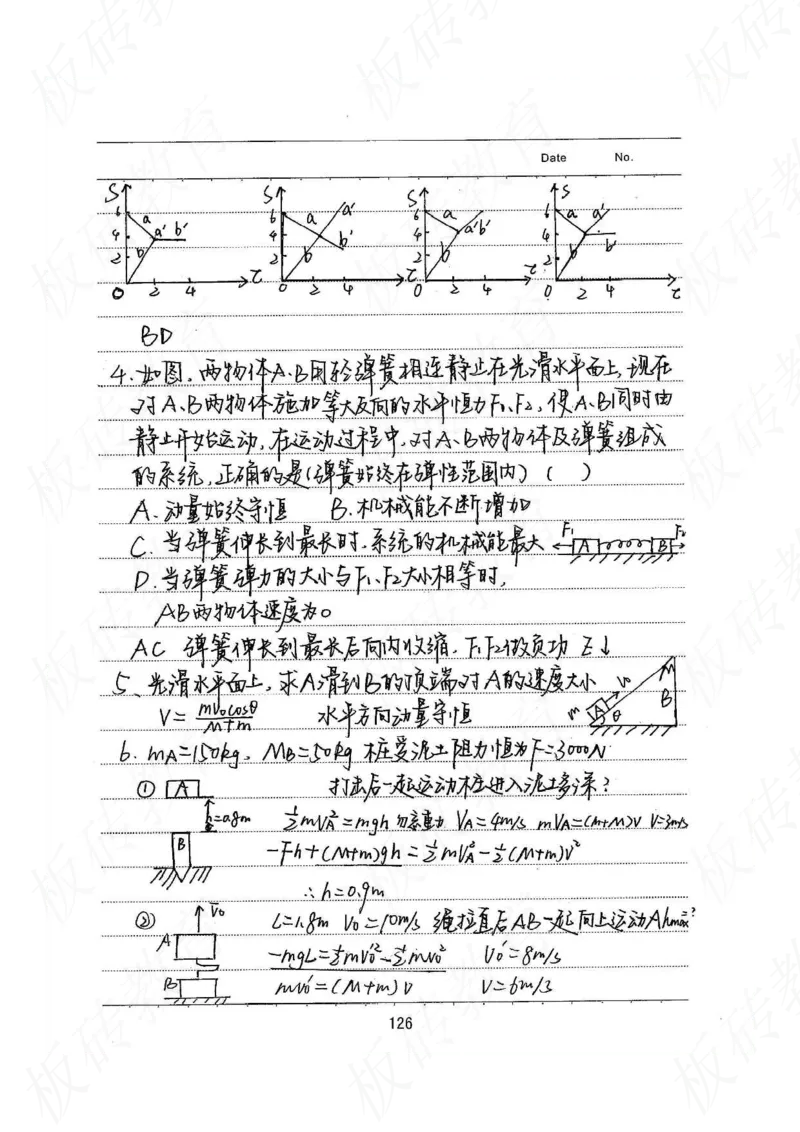 Date No.
S 6 4 2 0 2 4 t a b a' b'
S 6 4 2 0 2 4 t a b a' b'
S 6 4 2 0 2 4 t a b a'b'
S 6 4 2 0 2 4 t a b a' b'
BD
4.如图,两物体A、B用轻弹簧相连静止在光滑水平面上,现在
对A、B两物体施加等大反向的水平恒力F₁、F₂,使A、B同时由
静止开始运动,在运动过程中,对A、B两物体及弹簧组成
的系统,正确的是(弹簧始终在弹性范围内) ( )
A.动量始终守恒 B.机械能不断增加
C.当弹簧伸长到最长时,系统的机械能最大 F₁ A B F₂
D.当弹簧弹力的大小与F₁、F₂大小相等时,
AB两物体速度为0
AC 弹簧伸长到最长后向内收缩,F₁、F₂做负功 E↓
5、光滑水平面上,求A滑到B的顶端时A的速度大小
V=mv₀cosθ/M+m 水平方向动量守恒 m A v₀ θ M B
6. mA=150kg, MB=50kg 桩受泥土阻力恒为F=3000N
① A 打击后一起运动桩进入泥土多深?
h=0.8m ½mVA²=mgh 勿忘重力 VA=4m/s mVA=(m+M)V V=3m/s
B -Fh+(M+m)gh=½mVA²-½(M+m)V²
∴h=0.9m
② V₀ L=1.8m V₀=10m/s 绳拉直后AB一起向上运动Ahmax?
A -mgL=½mV₀'²-½mV₀² V₀'=8m/s
B mV₀'=(M+m)V V=6m/s
126
板砖教育